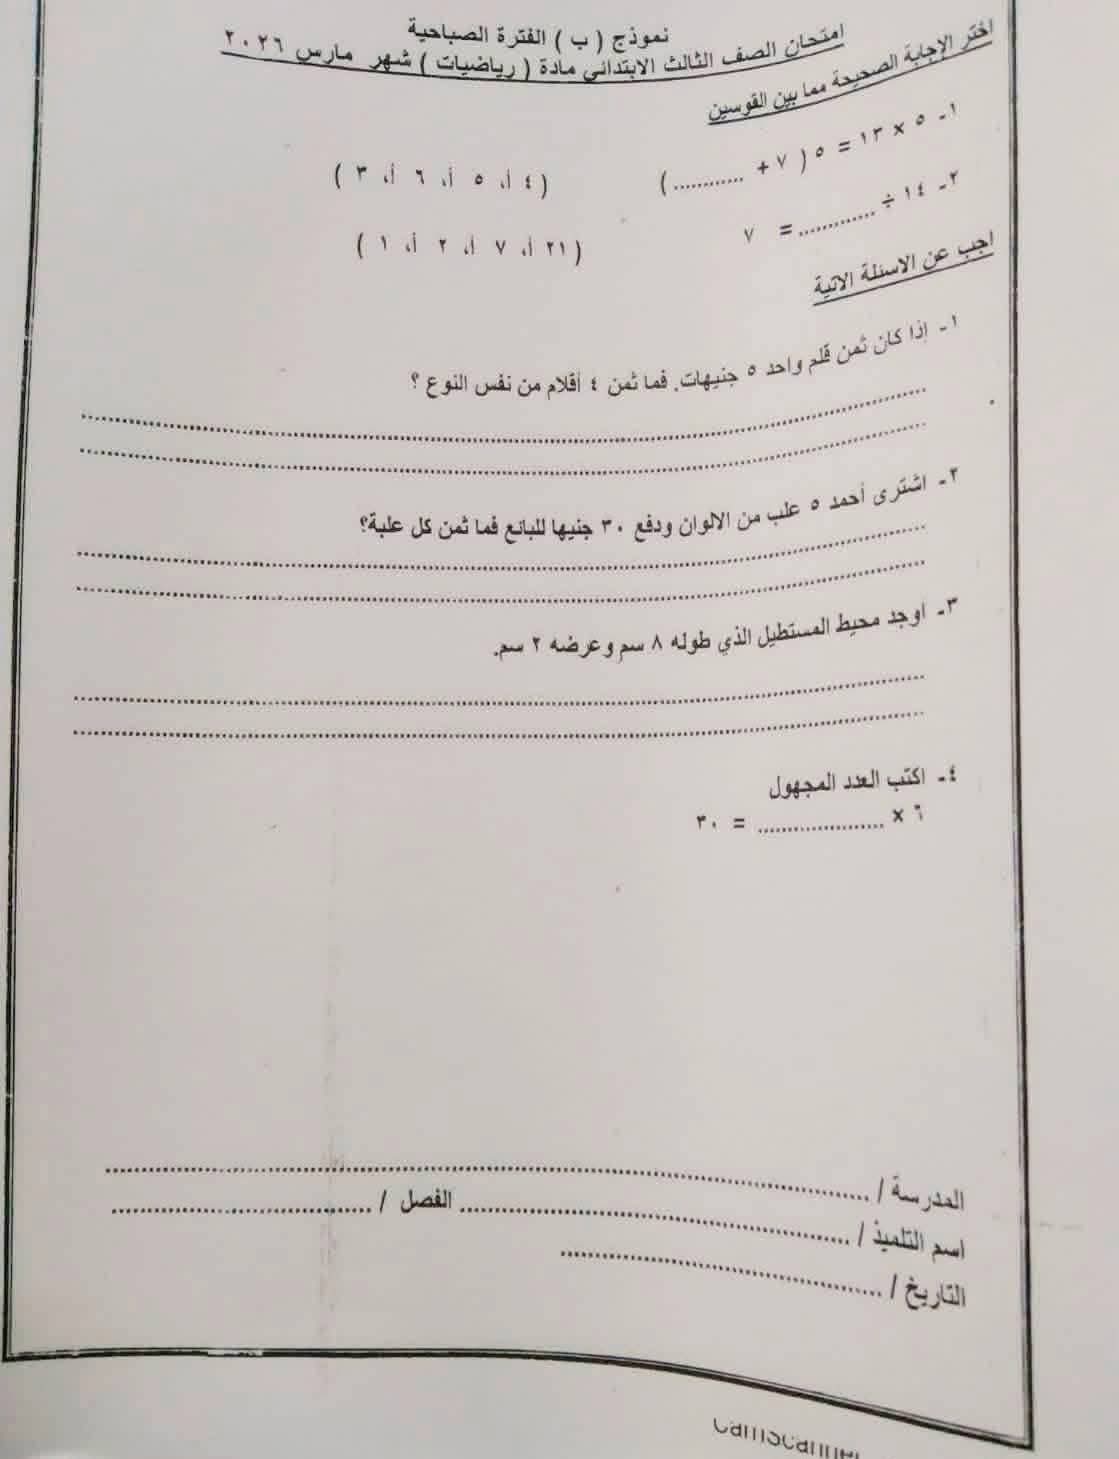 نموذج ( ب ) الفترة الصباحية
امتحان الصف الثالث الابتدائي مادة ( رياضيات ) شهر مارس ٢٠٢٦
اختر الإجابة الصحيحة مما بين القوسين
١- ٥ × ١٣ = ٥ ( ٧ + ............ ) ( ٤ أ، ٥ أ، ٦ أ، ٣ )
٢- ١٤ ÷ ............ = ٧ ( ٢١ أ، ٧ أ، ٢ أ، ١ )
اجب عن الاسئلة الاتية
١- إذا كان ثمن قلم واحد ٥ جنيهات. فما ثمن ٤ أقلام من نفس النوع ؟
٢- اشترى أحمد ٥ علب من الالوان ودفع ٣٠ جنيها للبائع فما ثمن كل علبة؟
٣- اوجد محيط المستطيل الذي طوله ٨ سم وعرضه ٢ سم.
٤- اكتب العدد المجهول
٦ × .................... = ٣٠
المدرسة / ....................
اسم التلميذ / .................... الفصل / ....................
التاريخ / ....................
CamScanner